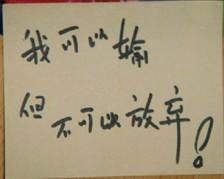 我可以输
但不可以放弃!